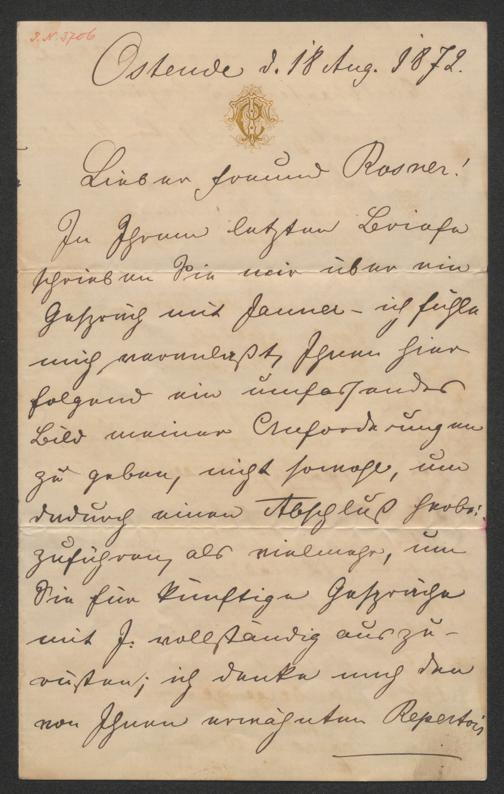 I. N. 3706
Ostende d. 18 Aug. 1872.
Lieber Freund Rosner!
In Ihrem letzten Briefe
schrieben Sie mir über ein
Gespräch mit Jauner – ich fühle
mich veranlaßt, Ihnen hier
folgend ein umfassendes
Bild meiner Anforderungen
zu geben, nicht sowohl, um
dadurch einen Abschluß herbei
zuführen, als vielmehr, um
Sie für künftige Gespräche
mit J. vollständig auszu-
rüsten; ich denke nach dem
von Ihnen erwähnten Repertoir